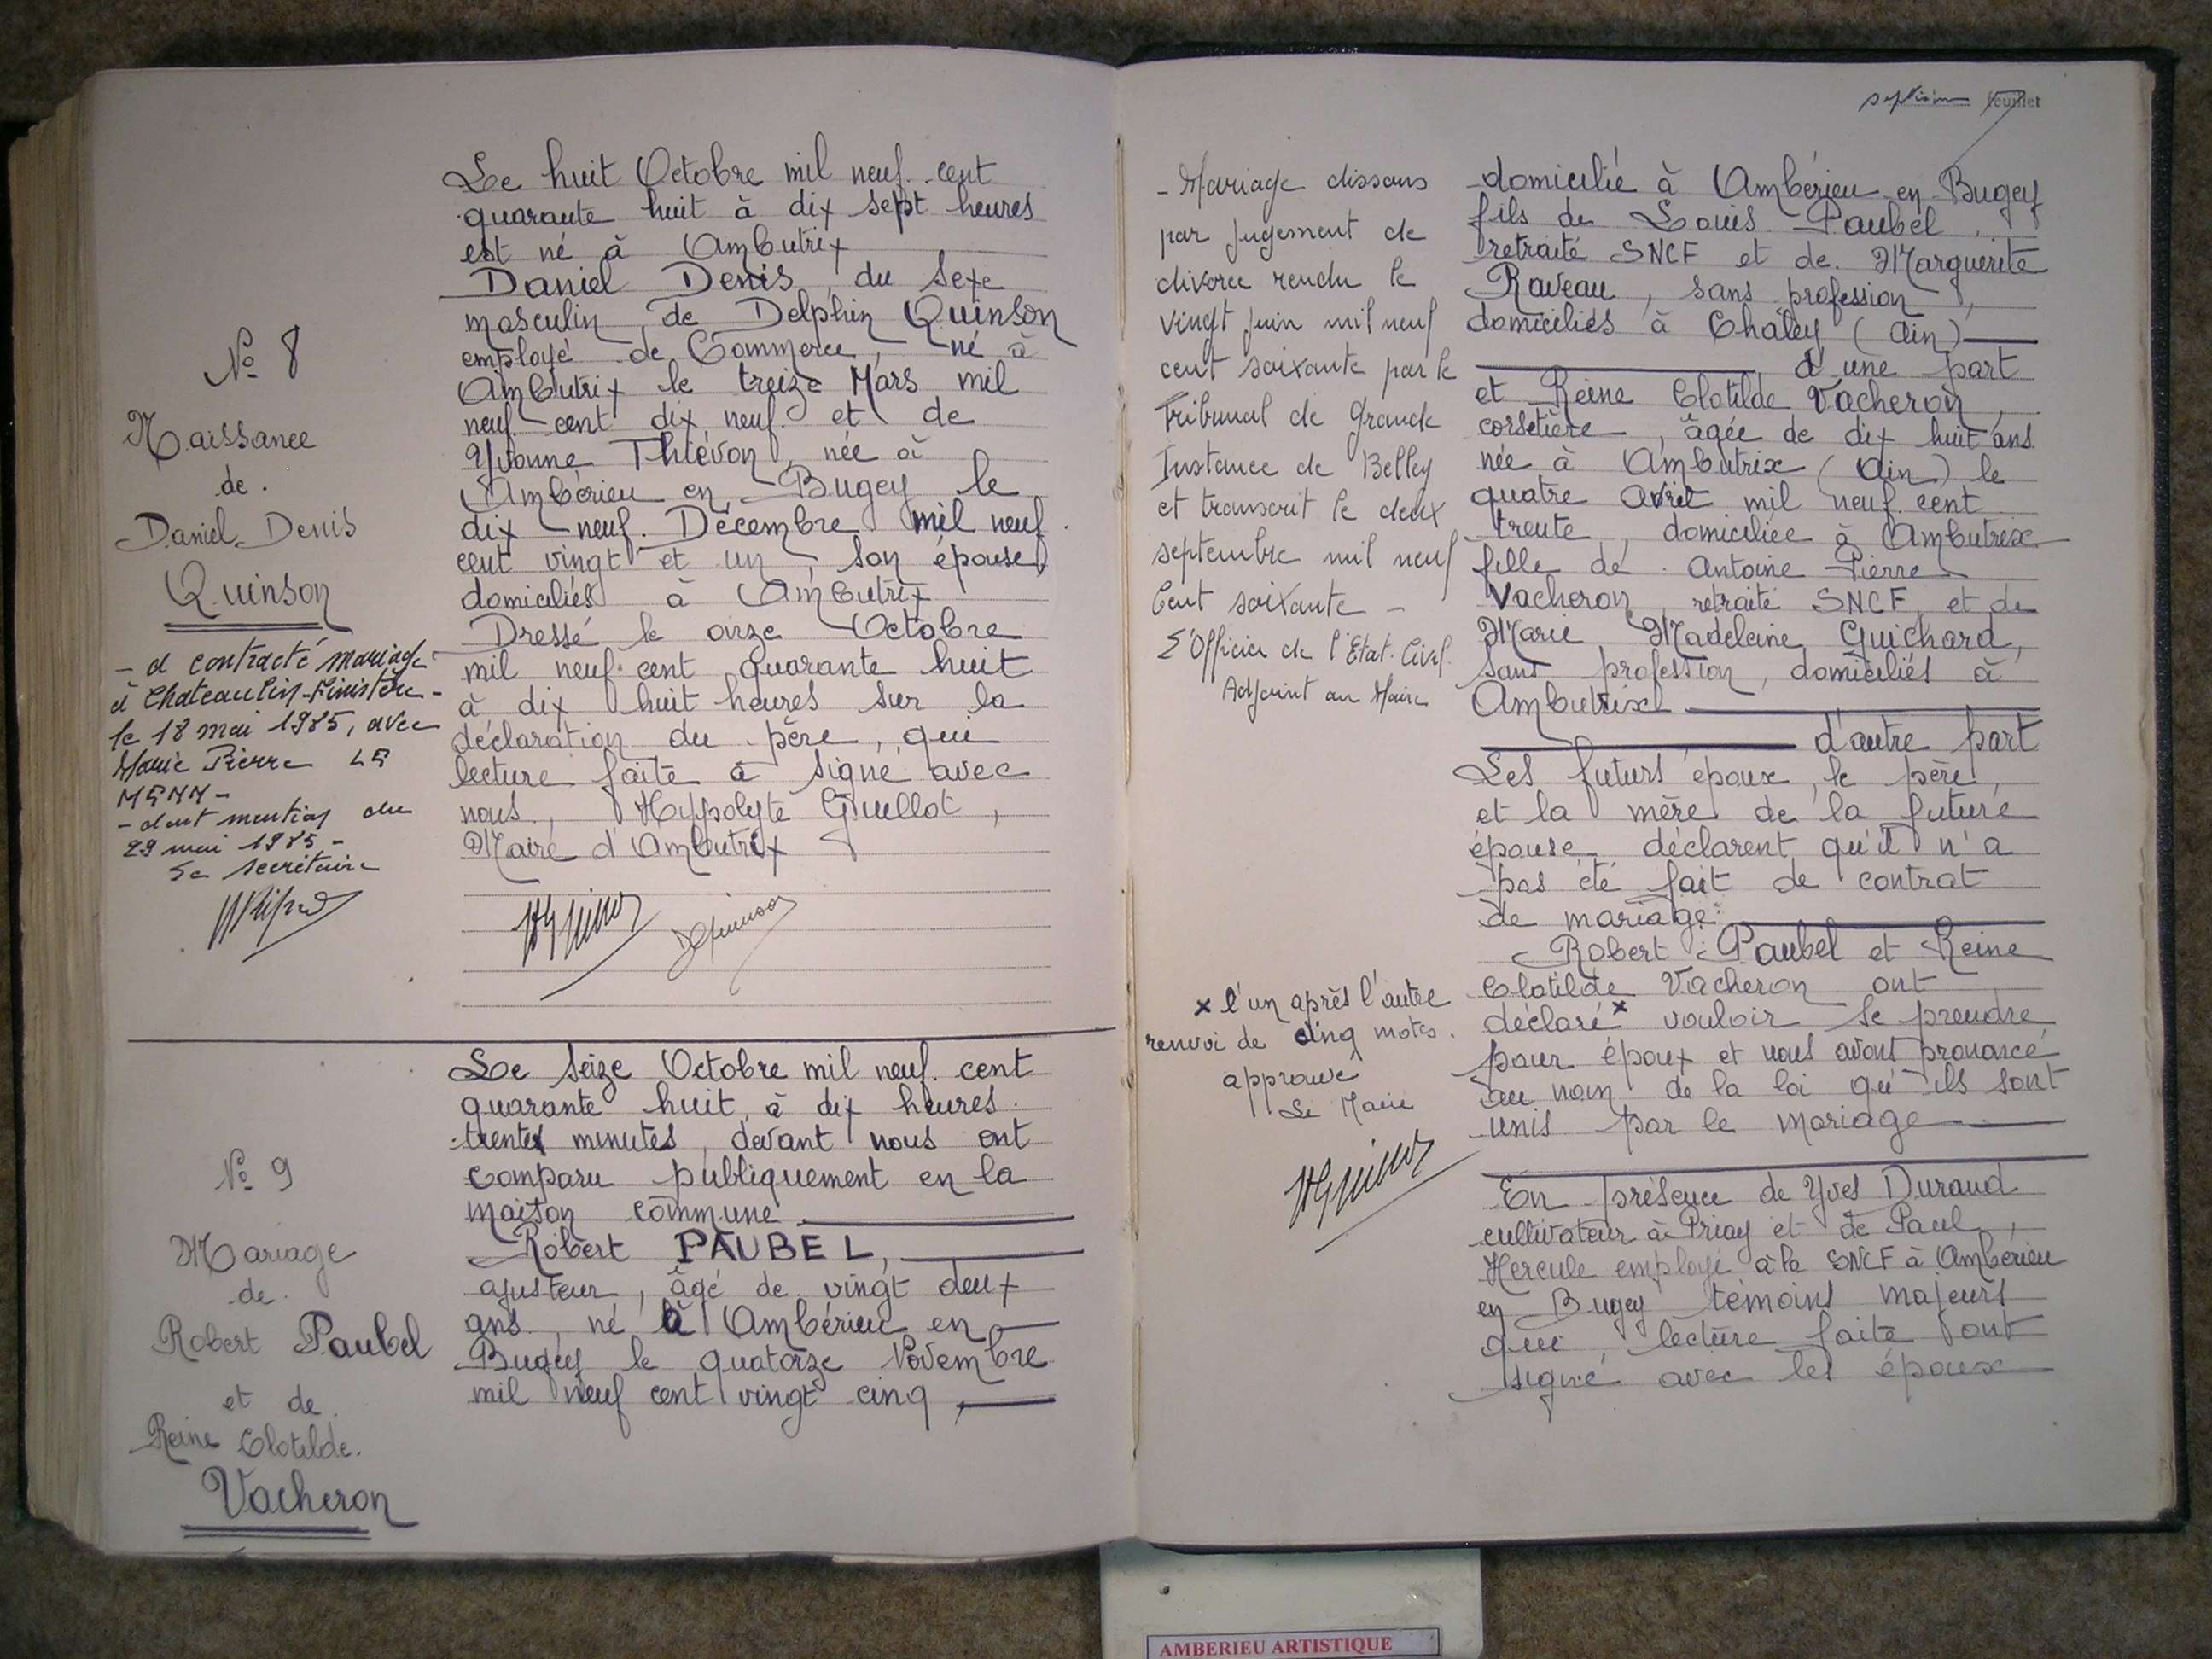 N° 8
Naissance
de
Daniel Denis
Quinson
- a contracté mariage
à Chateaulin-Finistère-
le 18 mai 1985, avec
Marie Pierre LE
MENN -
- dont mention du
29 mai 1985 -
Le secrétaire
Le huit Octobre mil neuf cent
quarante huit à dix sept heures
est né à Ambutrix
Daniel Denis, du sexe
masculin, de Delphin Quinson
employé de Commerce, né à
Ambutrix le treize Mars mil
neuf cent dix neuf et de
Yvonne Thiévon, née à
Ambérieu en Bugey le
dix neuf Décembre mil neuf
cent vingt et un, son épouse
domiciliés à Ambutrix
Dressé le onze Octobre
mil neuf cent quarante huit
à dix huit heures sur la
déclaration du père, qui
lecture faite a signé avec
nous, Hippolyte Guillot,
Maire d'Ambutrix
N° 9
Mariage
de
Robert Paubel
et de
Reine Clotilde.
Vacheron
Le seize Octobre mil neuf cent
quarante huit, à dix heures
trente minutes, devant nous ont
comparu publiquement en la
maison commune
Robert PAUBEL,
ajusteur, âgé de vingt deux
ans, né à Ambérieu en
Bugey le quatorze Novembre
mil neuf cent vingt cinq,
septième feuillet
- Mariage dissous
par jugement de
divorce rendu le
vingt juin mil neuf
cent soixante par le
Tribunal de Grande
Instance de Belley
et transcrit le deux
septembre mil neuf
Cent soixante -
L'Officier de l'Etat-Civil
Adjoint au Maire
x l'un après l'autre
renvoi de cinq mots.
approuvé
Le Maire
domicilié à Ambérieu-en-Bugey
fils de Louis Paubel,
retraité SNCF et de Marguerite
Raveau, sans profession,
domiciliés à Chaley (Ain)
d'une part
et Reine Clotilde Vacheron,
corsetière, âgée de dix huit ans
née à Ambutrix (Ain) le
quatre avril mil neuf cent
trente, domiciliée à Ambutrix
fille de Antoine Pierre
Vacheron, retraité SNCF, et de
Marie Madeleine Guichard,
sans profession, domiciliés à
Ambutrix
d'autre part
Les futurs époux, le père
et la mère de la future
épouse déclarent qu'il n'a
pas été fait de contrat
de mariage.
Robert Paubel et Reine
Clotilde Vacheron ont
déclaré x vouloir se prendre
pour époux et nous avons prononcé
au nom de la loi qu'ils sont
unis par le mariage
En présence de Yves Durand
cultivateur à Priay et de Paul
Hercule employé à la SNCF à Ambérieu
en Bugey témoins majeurs
qui, lecture faite ont
signé avec les époux
AMBERIEU ARTISTIQUE